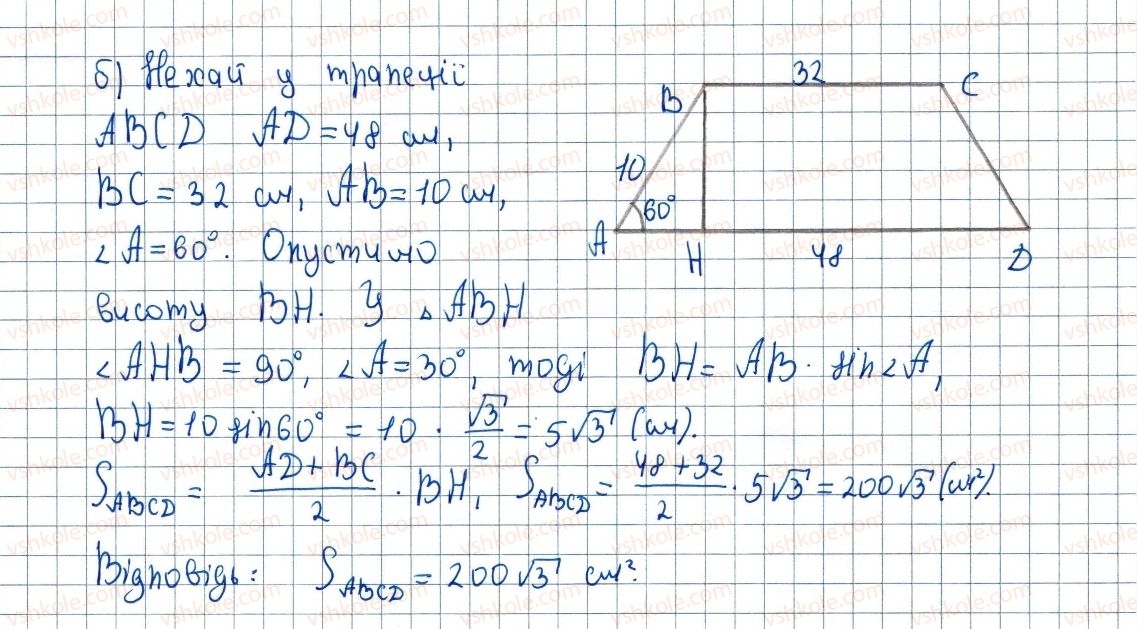 б) Нехай у трапеції
ABCD AD = 48 см,
BC = 32 см, AB = 10 см,
∠A = 60°. Опустимо
висоту BH. У △ABH
∠AHB = 90°, ∠A = 30°, тоді BH = AB · sin∠A,
BH = 10 sin60° = 10 · √3/2 = 5√3 (см).
S_ABCD = (AD + BC)/2 · BH, S_ABCD = (48 + 32)/2 · 5√3 = 200√3 (см²).
Відповідь: S_ABCD = 200√3 см².
32
B
C
10
60°
A
H
48
D
vshkole.com